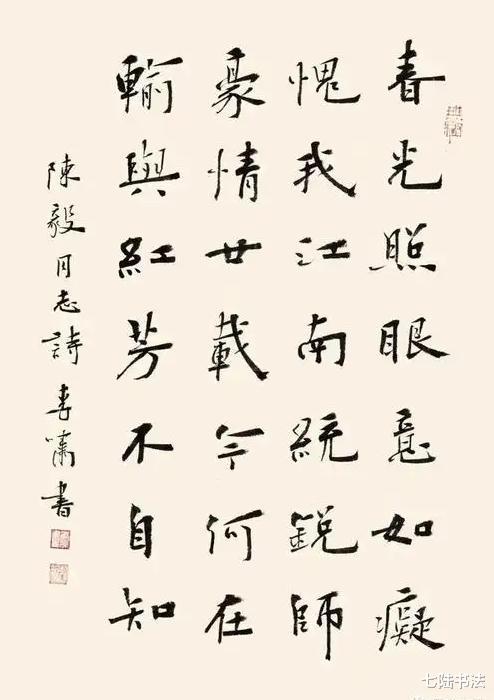 春光照眼意如癡
愧我江南統銳師
豪情廿載今何在
輸與紅芳不自知
陳毅同志詩 李嘯書
七陆书法